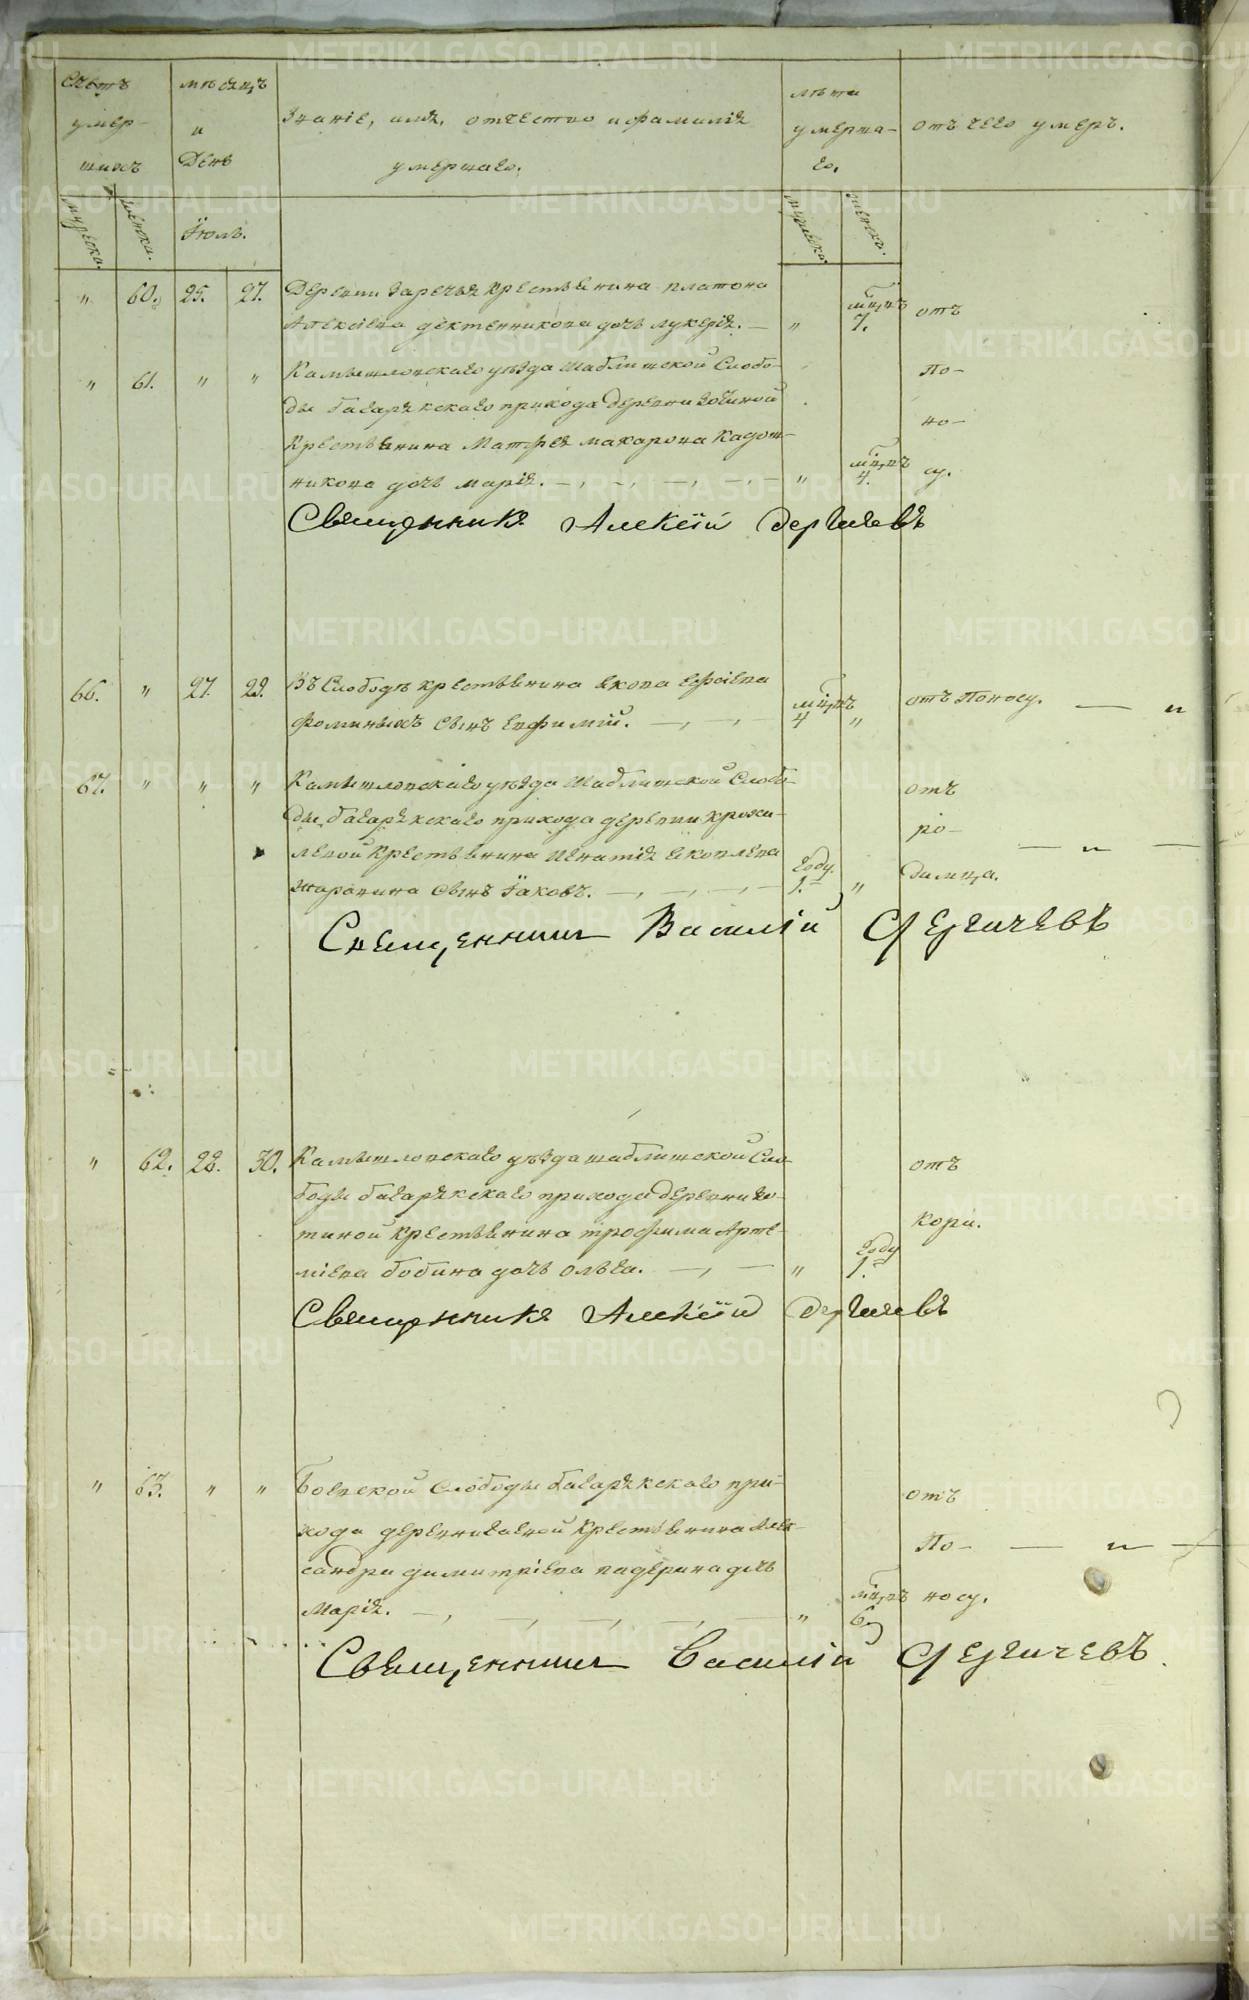 Счетъ
умер-
шихъ
мѣсяцъ
и
День
Званіе, имя, отчество и фамилія
умершаго.
лѣта
умерша-
го.
отъ чего умеръ.
мужска.
женска.
Іюль.
мужеска.
женск.
" 60. 25. 27. Деревни Заречья Крестьянина платона
Алексіева дектенникова дочь лукерія. — " мѣ,цъ 7. отъ
" 61. " " Камышловскаго уѣзда Шаблишской Слобо- по-
ды багарякскаго прихода деревни зотиной но-
Крестьянина Матфея макарова Кадош-
никова дочь марія. —, —, —, —, — " мѣ,цъ 4. су.
Священникъ Алексій Дергачевъ
66. " 27. 29. Въ Слободѣ крестьянина якова ефсіева
фоминыхъ сынъ Евфимій. —, —, мѣ,цъ 4 " отъ Поносу. — " 
67. " " " Камышловскаго уѣзда Шаблишской Слобо- отъ
ды, багарякскаго прихода деревни кроха- ро- — "
левой Крестьянина Игнатія яковлева
шаравина сынъ Іаковъ. —, —, —, — году. 1. " димца.
Священникъ Василій Сергичевъ
" 62. 28. 30. Камышловскаго уѣзда шаблишской Сло- отъ
боды багарякскаго прихода деревни зо-
тиной крестьянина трофима Арте- кори.
міева бобина дочь Ольга. —, — " году 1.
Священникъ Алексій Дергачевъ
" 63. " " Боевской Слободы багарякскаго при- отъ
хода деревни гаевой Крестьянина Алек- По- — "
сандра димитріева падерина дочь
Марія. —, —, —, —, — " мѣ,цъ 6. носу.
Священникъ Василій Сергичевъ
METRIKI.GASO-URAL.RU